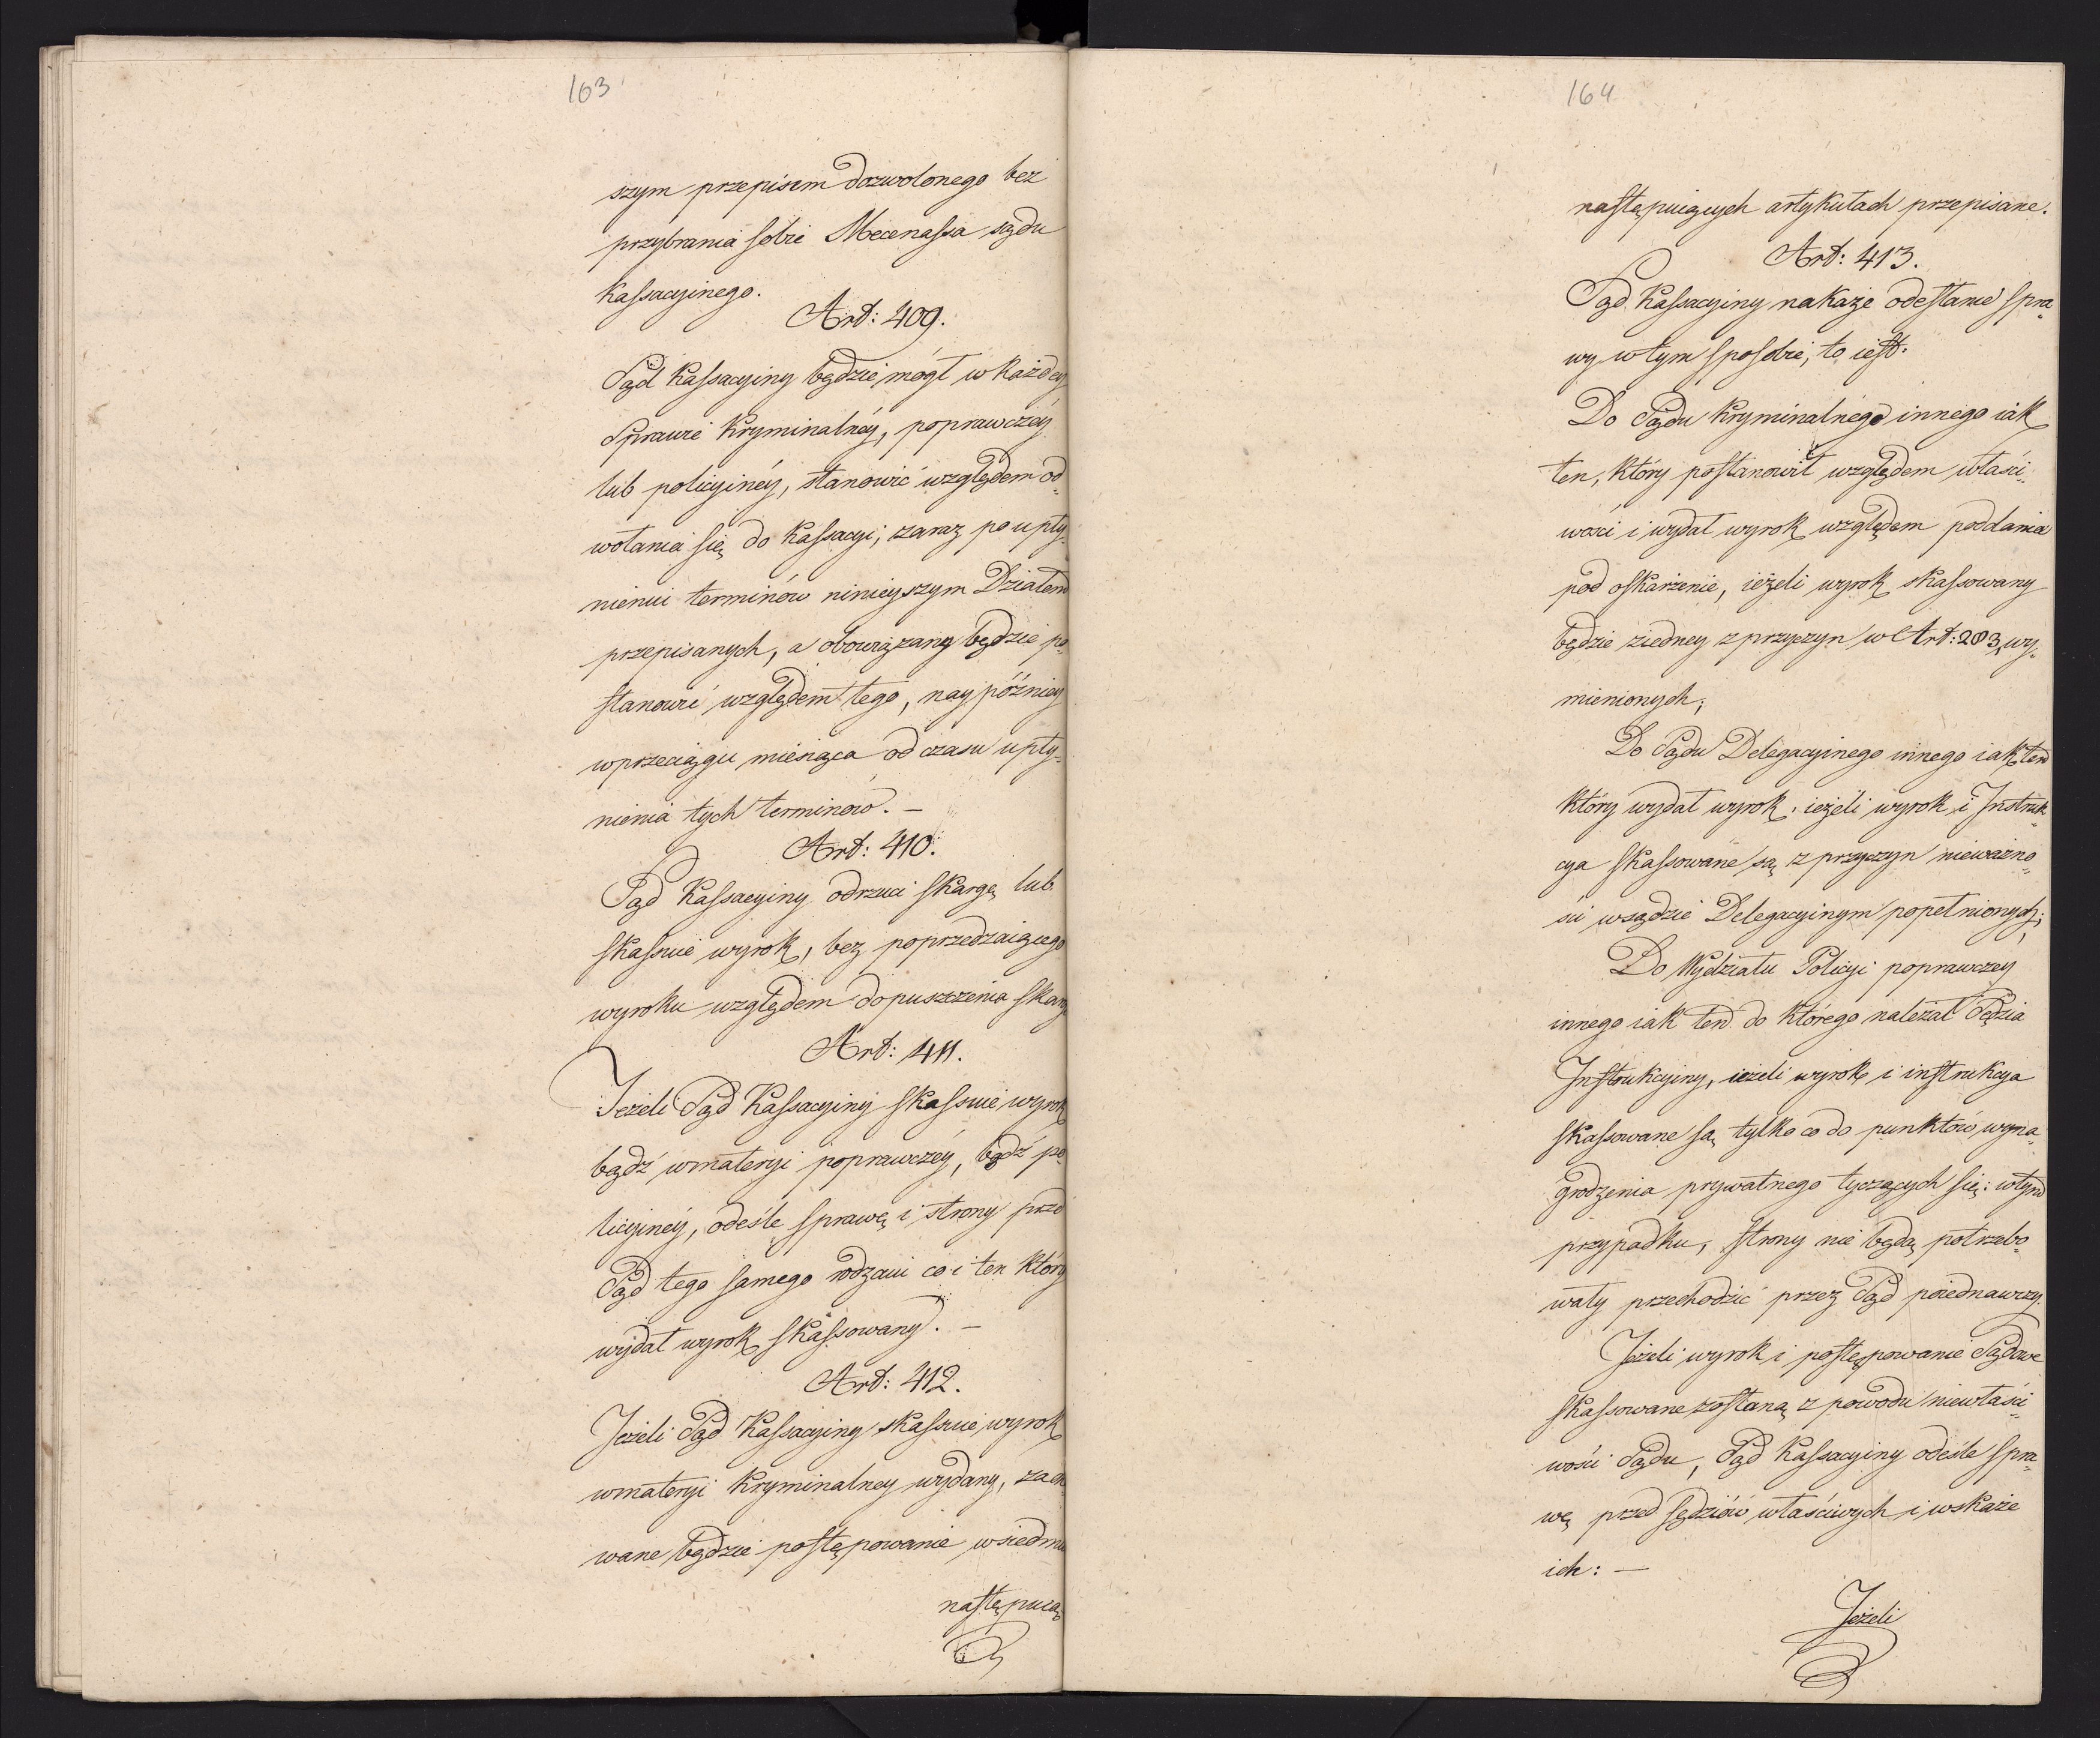 163
szym przepisem dozwolonego bez
przybrania sobie Mecenassa sądu
Kassacyinego.
Art: 409.
Sąd Kassacyiny będzie mógł w każdey
Sprawie Kryminalnéy, poprawczéy
lub policyinéy, stanowić względem od=
wołania się do Kassacyi, zaraz po upły=
nieniu terminów ninieyszym Działem
przepisanych, a obowiązany będzie po=
stanowić względem tego, naypóźniey
w przeciągu miesiąca od czasu upły=
nienia tych terminów. —
Art: 410.
Sąd Kassacyiny odrzuci skargę lub
skassuie wyrok, bez poprzedzaiącego
wyroku względem dopuszczenia skarg
Art: 411.
Jeżeli Sąd Kassacyiny skassuie wyrok
bądź w materyi poprawczéy, bądź po=
licyinéy, odeśle sprawę i strony przed
Sąd tego samego rodzaiu co i ten który
wydał wyrok skassowany. —
Art: 412.
Jeżeli Sąd Kassacyiny skassuie wyrok
w materyi Kryminalney wydany, zacho
wane będzie postępowanie w siedmiu
następuią
164
następuiących artykułach przepisane.
Art: 413.
Sąd Kassacyiny nakaże odesłanie spra=
wy w tym sposobie, to iest:
Do Sądu Kryminalnego innego iak
ten, który postanowił względem właści=
wości i wydał wyrok względem poddania
pod oskarżenie, ieżeli wyrok skassowany
będzie z iedney z przyczyn w Art: 283, wy=
mienionych;
Do Sądu Delegacyinego innego iak ten
który wydał wyrok, ieżeli wyrok i Instruk=
cya skassowane są z przyczyn nieważno=
ści w sądzie Delegacyinym popełnionych;
Do Wydziału Policyi poprawczey
innego iak ten do którego należał Sędzia
Instrukcyiny, ieżeli wyrok i instrukcya
skassowane są, tylko co do punktów wyna=
grodzenia prywatnego tyczących się: w tym
przypadku, strony nie będą potrzebo=
wały przechodzić przez Sąd poiednawczy.
Jeżeli wyrok i postępowanie Sądowe
skassowane zostaną z powodu niewłaści=
wości Sądu, Sąd Kassacyiny odeśle spra=
wę przed sędziów właściwych i wskaże
ich: —
Jeżeli